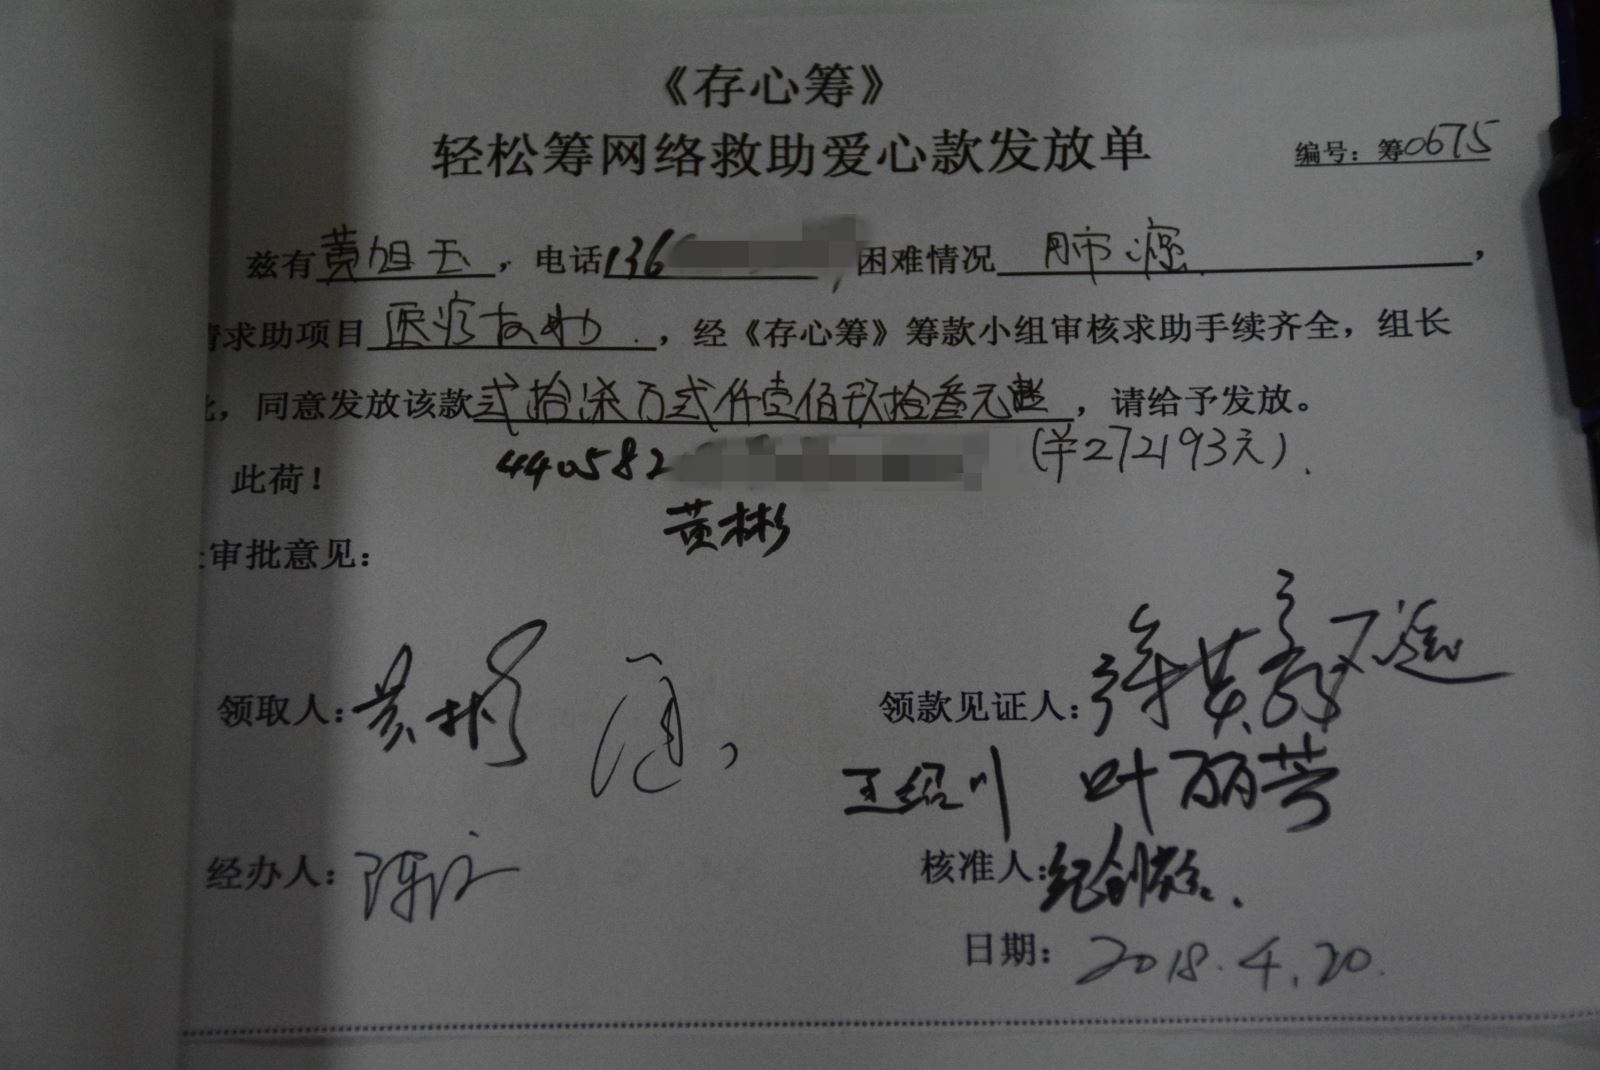 《存心筹》
轻松筹网络救助爱心款发放单
编号：筹0675
兹有黄旭玉，电话136 困难情况 肺癌，
求助项目医疗救助，经《存心筹》筹款小组审核求助手续齐全，组长
，同意发放该款贰拾柒万贰仟壹佰玖拾叁元整，请给予发放。
此荷！ 440582 (¥272193元).
黄彬
审批意见：
领取人：黄彬 领款见证人：
王绍川 叶丽芳
经办人： 核准人：
日期：2018.4.20.